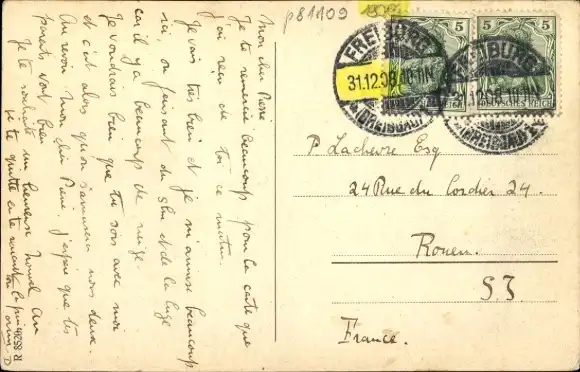 p81109
Mon cher Pierre
Je te remercie beaucoup pour la carte que
j'ai reçu de toi ce matin.
Je vais très bien et je m'amuse beaucoup
ici, on faisant du ski et de la luge
car il y a beaucoup de neige.
Je voudrais bien que tu sois avec moi
et c'est alors qu'on s'amusera nous deux.
Au revoir mon cher Pierre j'espère que tes
parents vont bien
Je te souhaite un heureuse nouvel an
je te quitte en te
R 8529
5
5
FREIBURG
31.12.09.10-11N
(BREISGAU)
FREIBURG
31.12.09.10-11N
(BREISGAU)
DEUTSCHES REICH
P Lachevre Esq
24 Rue du Cordier 24.
Rouen.
S. I
France.